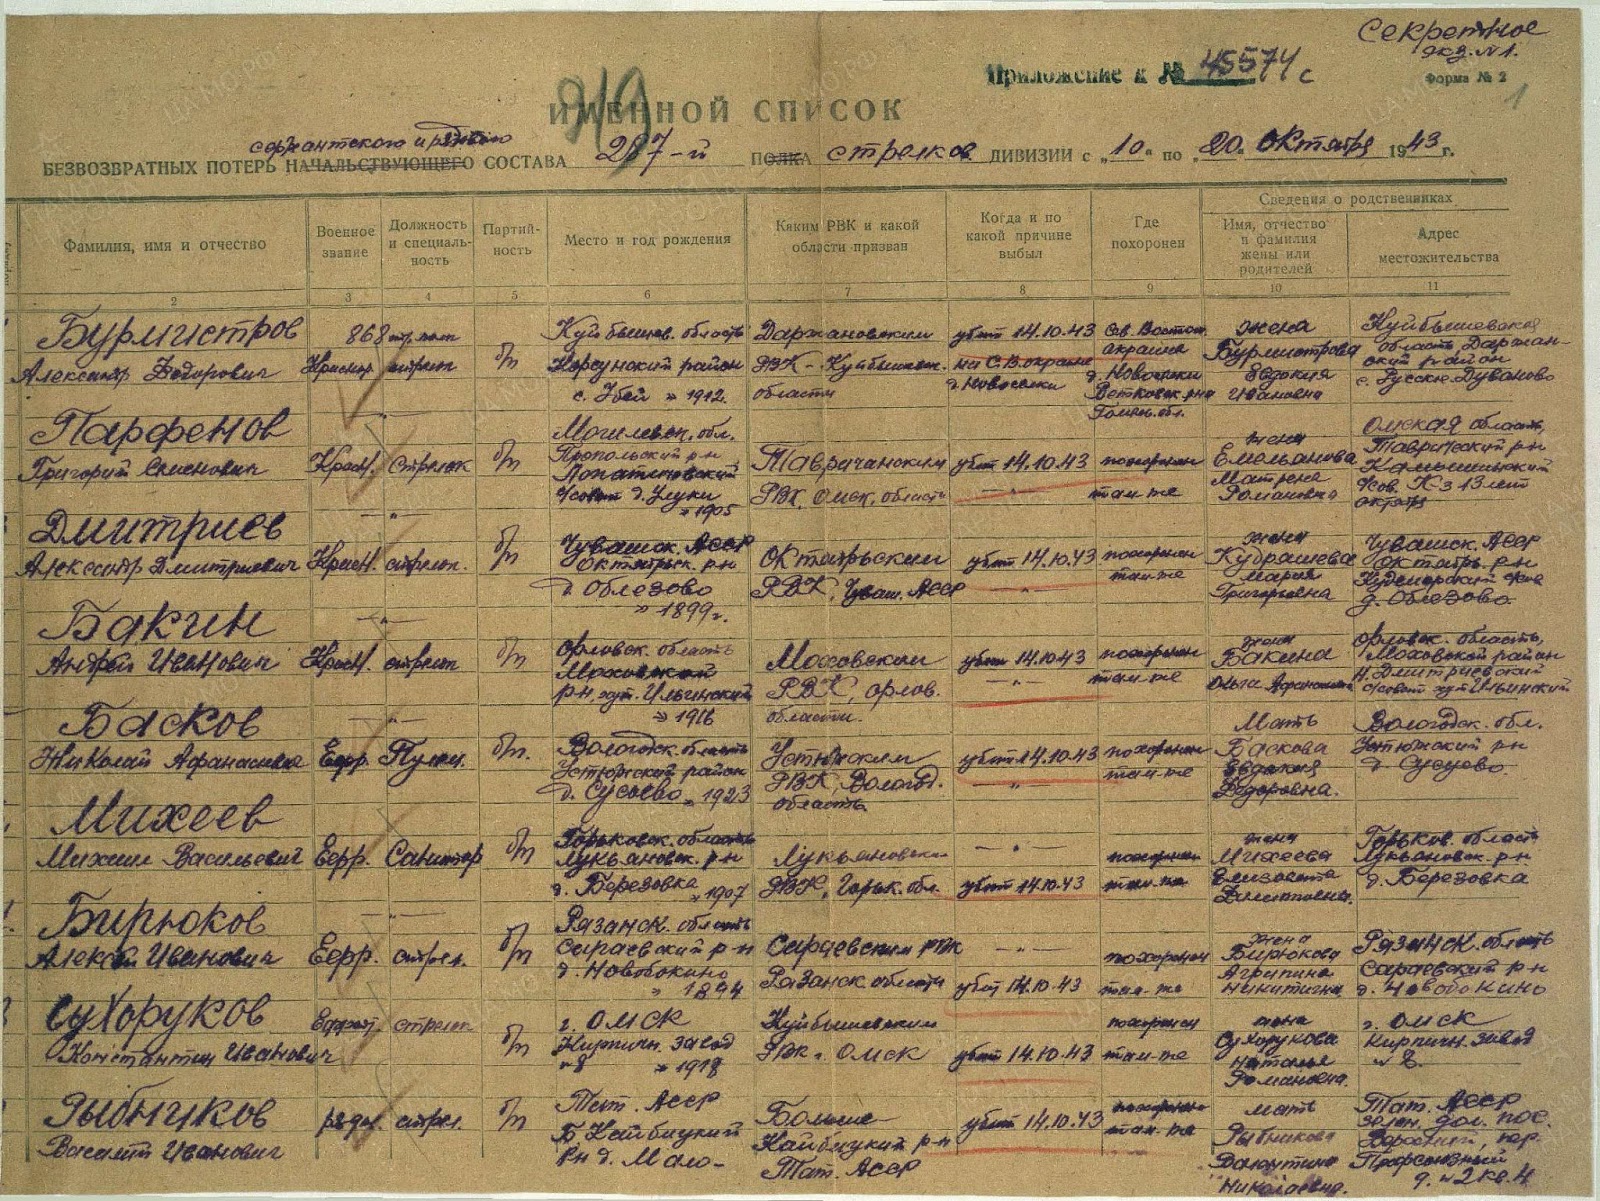 Секретное
экз. №1.
Приложение к № 45574 с
Форма № 2
1
ИМЕННОЙ СПИСОК
сержантского и рядового
БЕЗВОЗВРАТНЫХ ПОТЕРЬ НАЧАЛЬСТВУЮЩЕГО СОСТАВА 287-й ПОЛКА стрелков. ДИВИЗИИ с „10“ по „20“ октября 1943 г.
Фамилия, имя и отчество
Военное звание
Должность и специаль-ность
Партий-ность
Место и год рождения
Каким РВК и какой области призван
Когда и по какой причине выбыл
Где похоронен
Сведения о родственниках
Имя, отчество и фамилия жены или родителей
Адрес местожительства
2 3 4 5 6 7 8 9 10 11
Бурмистров
Александр Федорович
868 стр. полк
стрелок
б/п
Куйбышев. область
Корсунский район
1912.
Куйбышев.
области
убит 14.10.43
на С.В. окраине
д. Новоселки
Сев. Восточ.
окраина
д. Новоселки
Ветковск. р-на
Гомел. обл.
жена
Бурмистрова
Евдокия
Ивановна
Куйбышевская
область
район
Парфенов
Григорий Семенович
Красн. стрелок
б/п
Могилевск. обл.
Пропольский р-н
1905
Тавричанским
РВК, Омск. область
убит 14.10.43
похоронен
там-же
жена
Емельянова
Матрена
Романовна
Омская область,
Таврический р-н
К-з 13 лет
октября
Дмитриев
Александр Дмитриевич
Красн. стрелок
б/п
Чувашск. АССР
Октябрьск. р-н
д. Облезово
1899 г.
Октябрьским
РВК, Чуваш. АССР
убит 14.10.43
похоронен
там-же
жена
Кудряшева
Мария
Григорьевна
Чувашск. АССР
Октябр. р-н
д. Облезово.
Бакин
Андрей Иванович
Красн. стрелок
б/п
Орловск. область
Моховской
р-н, хут. Ильинский
1916
Моховским
РВК, Орлов.
области.
убит 14.10.43
похоронен
там-же
жена
Бакина
Ольга
Орловск. область,
Моховской район
Н. Дмитриевский
с/совет хут Ильинский
Басков
Николай Афанасьевич
Ефр.
б/п.
Вологодск. область
Устюжский район
1923
Устюжским
РВК, Вологод.
область
убит 14.10.43
похоронен
там-же
Мать
Баскова
Евдокия
Федоровна.
Вологодск. обл.
Устюжский р-н
Михеев
Михаил Васильевич
Ефр. Санитар
б/п
Горьковск. область
Лукьяновск. р-н
д. Березовка 1907
Лукьяновским
РВК, Горьк. обл.
убит 14.10.43
похоронен
там-же
жена
Михеева
Елизавета
Дмитриевна.
Горьков. област
Лукьяновск. р-н
д. Березовка
Бирюков
Алексей Иванович
Ефр. стрел.
б/п
Рязанск. область
Сараевский р-н
д. Новобокино
1894
Сараевским РВК
Рязанск области
убит 14.10.43
похоронен
там-же
жена
Бирюкова
Агрипина
Никитична
Рязанск. область
Сараевский р-н
д. Новобокино
Сухоруков
Константин Иванович
стрелок
б/п
г. Омск
Кирпичн. завод
№8 1918
Куйбышевским
РВК г. Омск
убит 14.10.43
похоронен
там-же
жена
Сухорукова
Наталья
Романовна.
г. Омск
Кирпичн. завод
№ 8.
Рыбников
Василий Иванович
рядов. стрел.
б/п
Тат. АССР
Б Кайбицкий
р-н д. Мало-
Больше-
Кайбицкий р-н
Тат. АССР
убит 14.10.43
похоронен
там-же
мать
Рыбникова
Валентина
Николаевна.
Тат. АССР
Зелен. дол. пос.
пер.
Профсоюзный
д. №2 кв. 4